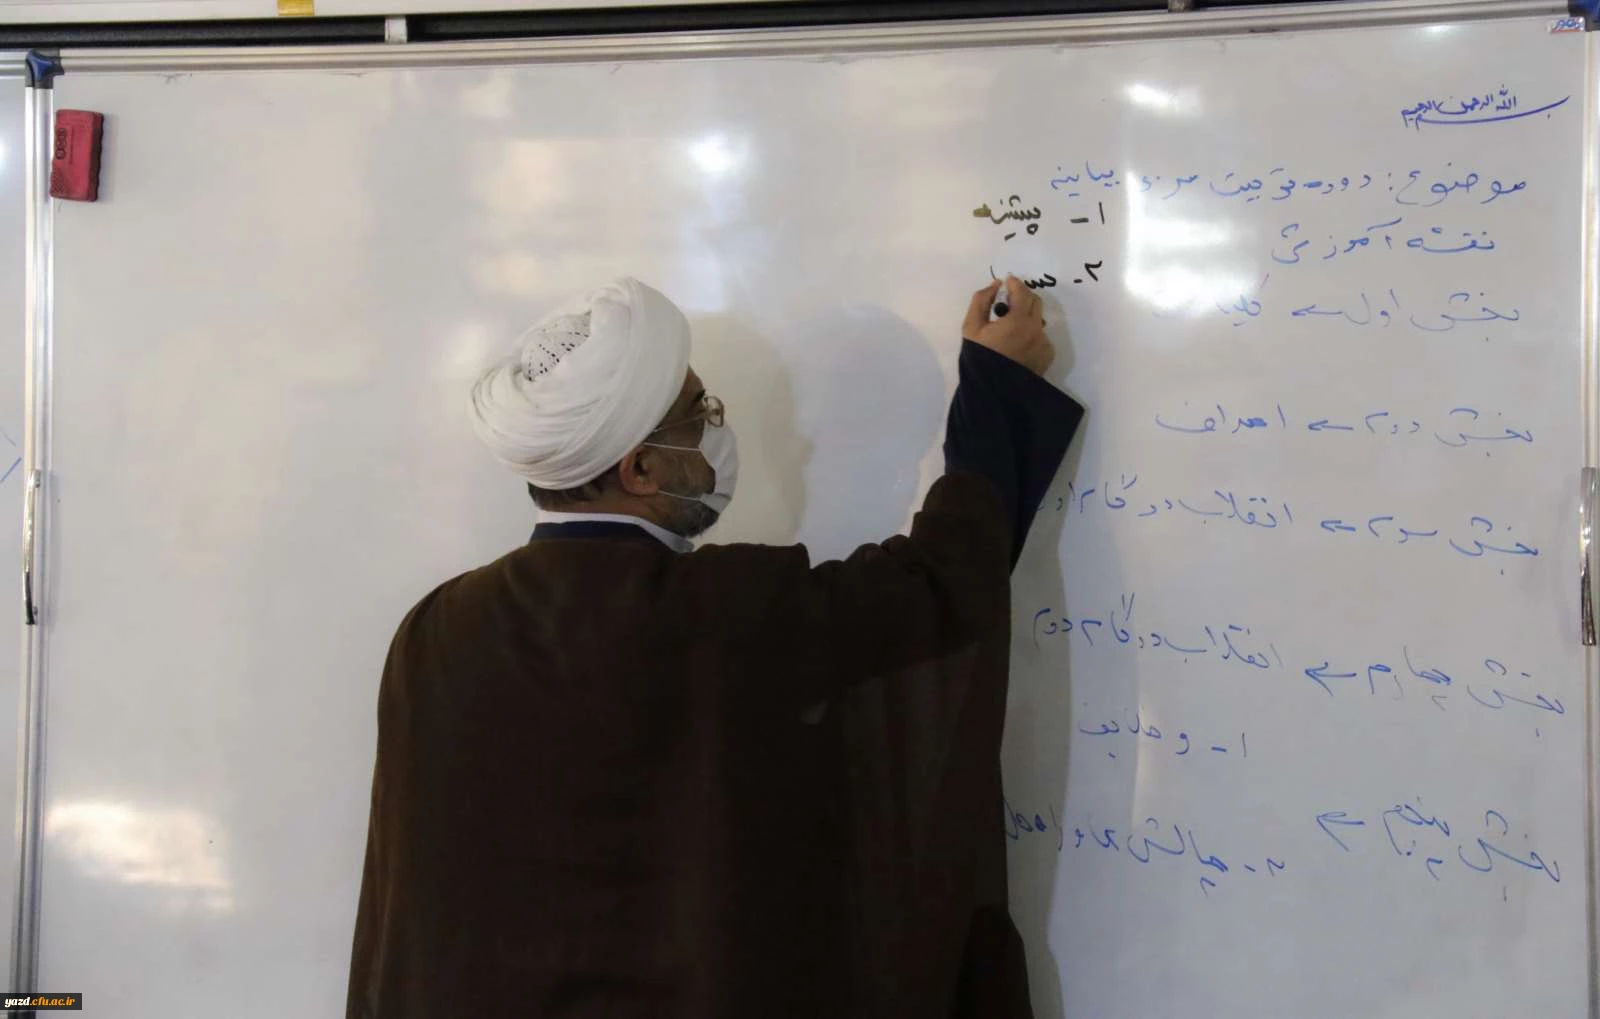 بسم الله الرحمن الرحیم
موضوع: دوره تربیت مربی بیانیه
۱- پیشینه
نقشه آموزشی
۲-
بخش اول
بخش دوم اهداف
بخش سوم انقلاب در گام
بخش چهارم انقلاب در گام دوم
۱- وظایف
بخش پنجم
۲- چالش ها و راه حل
yazd.cfu.ac.ir